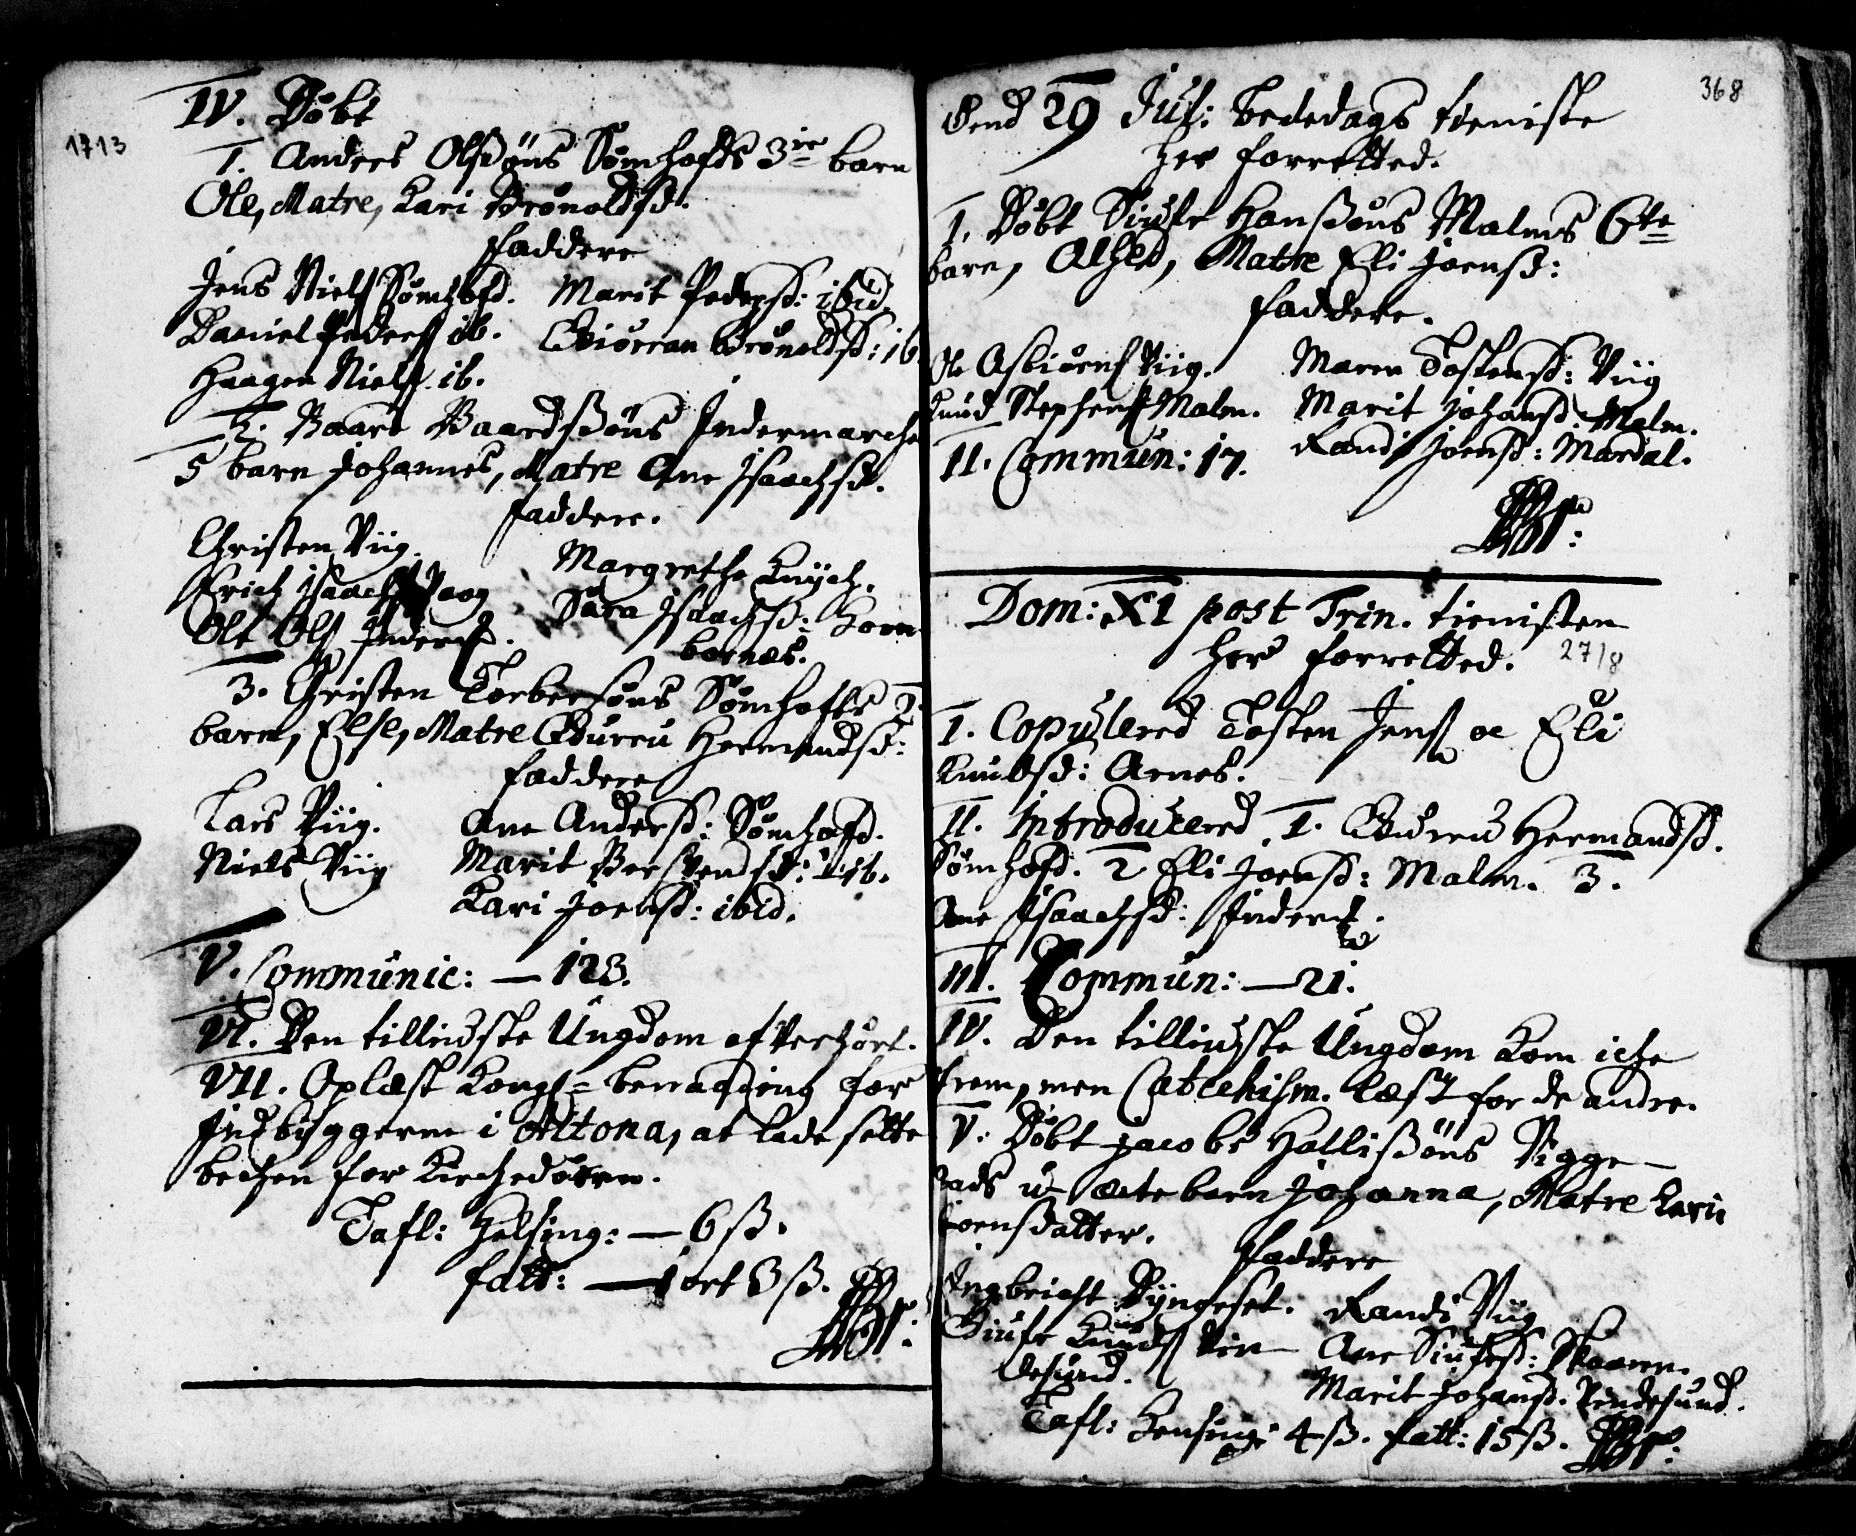 1713
IV. Døbt
1. Anders Olsßøns Sømhofds 3ie barn
Ole, Matre, Kari Brønoldsd.
Faddere
Jens Niels Sømhofd. Marit Pedersd: ibid.
Daniel Peders ib. Brønoldsd: ib.
Haagen Niels ib.
2. Baard Baardsßøns Indermarche
5 barn Johannes, Matre Ane Isaachsd.
Faddere.
Christen Viig. Margrethe
Erich Isaachs Sara Isaachsd: Korn-
Ole Ols Inderm. bornæs.
3. Christen Torbersøns Sømhofds 2
barn, Else, Matre Guru Hermandsd:
Faddere
Lars Viig. Ane Andersd: Sømhofd.
Niels Viig Marit Bersvendsd: ib.
Kari Joensd: ibid.
V. Communic: — 123.
VI. Den tilliudste Ungdom ofverhørt.
VII. Oplæst Kongl= benaading for
Indbyggerne i Altona, at lade sette
bechen for Kirchedøren.
Tafl: Helsing: — 6 ß.
fatt: — 1 ort 8 ß.
368
Dend 29 Jul: Bededags tieniste
her forretted.
1. Døbt Siufr Hansßøns Malms 6te
barn, Alhed, Matre Eli Joensd:
Faddere.
Ole Asbiørns Viig. Maren Tostensd: Viig
Knud Stephens Malm. Marit Johansd: Malm.
II. Commun: 17. Randi Joensd: Mordal.
Dom: XI post Trin. tienisten
her forretted. 27/8
I. Copulered Tosten Jens oc Eli
Knudsd: Arnes.
II. Introducered 1. Guru Hermandsd.
Sømhofd. 2 Eli Joensd: Malm. 3.
Ane Isaachsd: Inderm.
III. Commun: — 21.
IV. Den tilliudste Ungdom kom iche
frem, men Catechism. læst for de andre.
V. Døbt Jacob Hallisßøns Rigge-
stads u-ægte barn Johanna, Matre Kari
Joensdatter.
Faddere
Ingbricht Dyngeset. Randi Viig
Siufr Knuds Vin- Ane Siufrsd: Skaaren.
desund. Marit Johansd: Vindesund.
Tafl: Hensing: 4 ß. fatt: 15 ß.